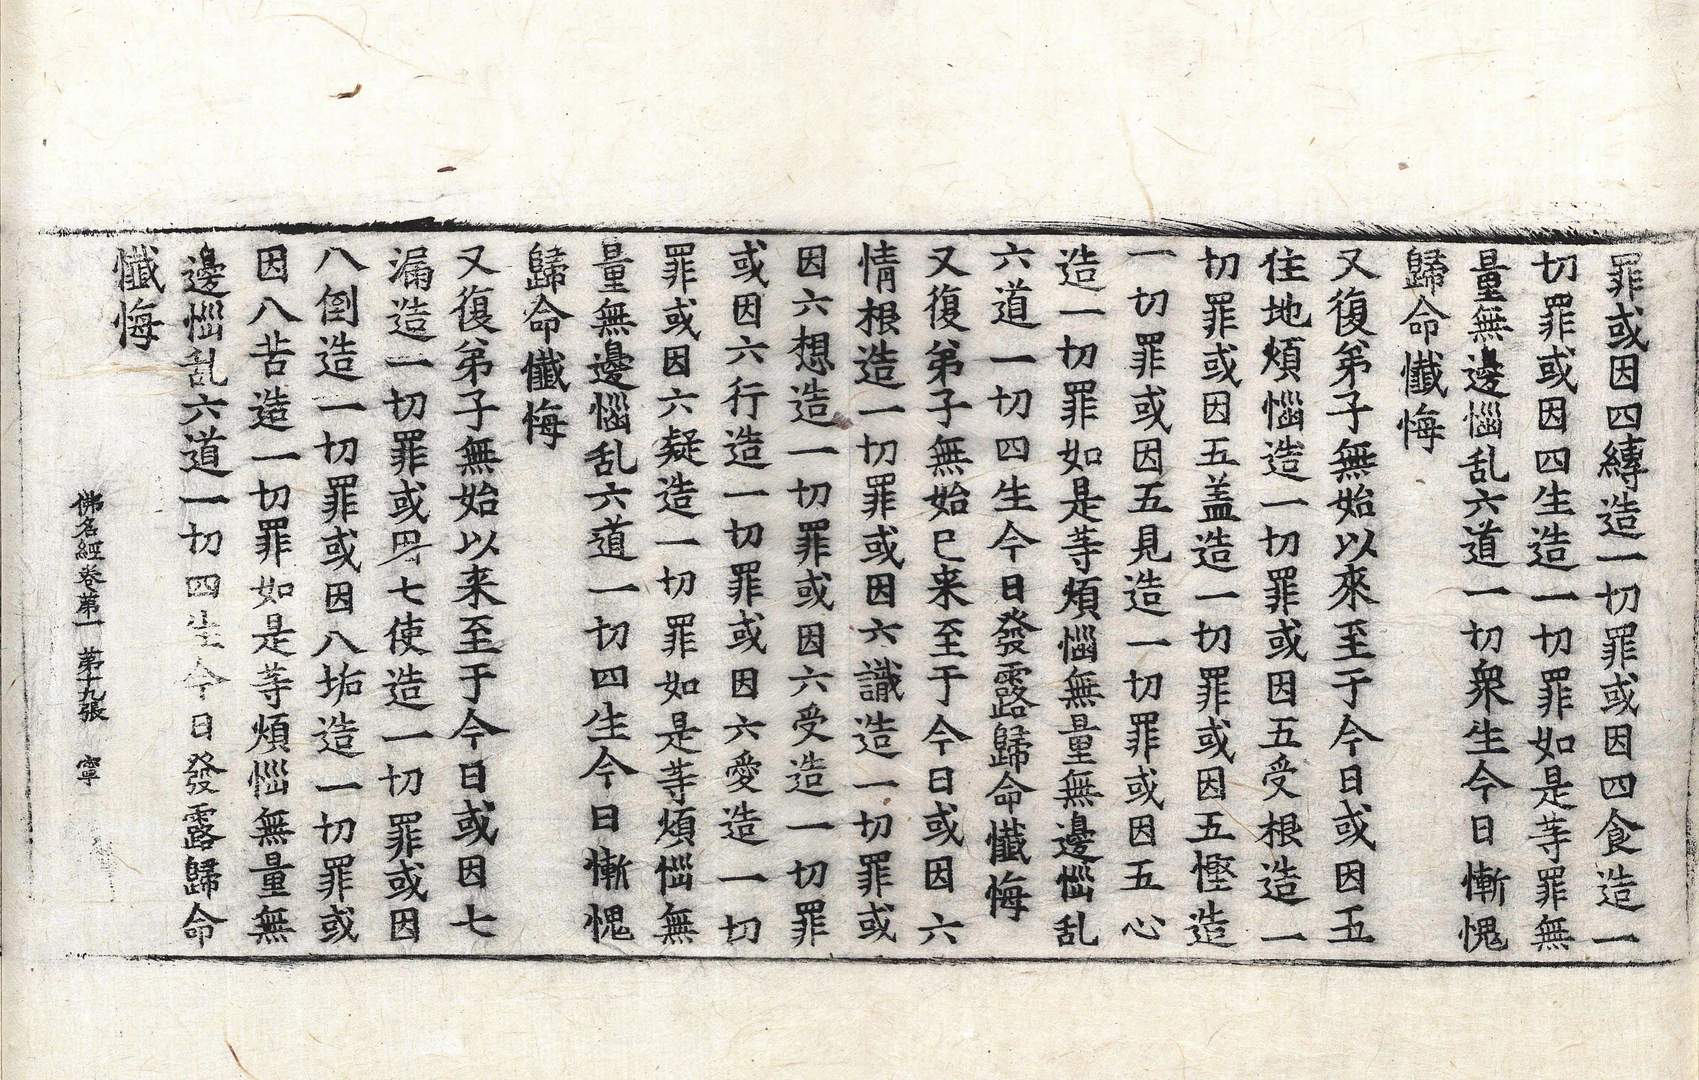 罪或因四縛造一切罪或因四食造一
切罪或因四生造一切罪如是等罪無
量無邊惱乱六道一切衆生今日慚愧
歸命懺悔
又復弟子無始以來至于今日或因五
住地煩惱造一切罪或因五受根造一
切罪或因五盖造一切罪或因五慳造
一切罪或因五見造一切罪或因五心
造一切罪如是等煩惱無量無邊惱乱
六道一切四生今日發露歸命懺悔
又復弟子無始已来至于今日或因六
情根造一切罪或因六識造一切罪或
因六想造一切罪或因六受造一切罪
或因六行造一切罪或因六愛造一切
罪或因六疑造一切罪如是等煩惱無
量無邊惱乱六道一切四生今日慚愧
歸命懺悔
又復弟子無始以来至于今日或因七
漏造一切罪或因七使造一切罪或因
八倒造一切罪或因八垢造一切罪或
因八苦造一切罪如是等煩惱無量無
邊惱乱六道一切四生今日發露歸命
懺悔
佛名經卷第一 第十九張 寧